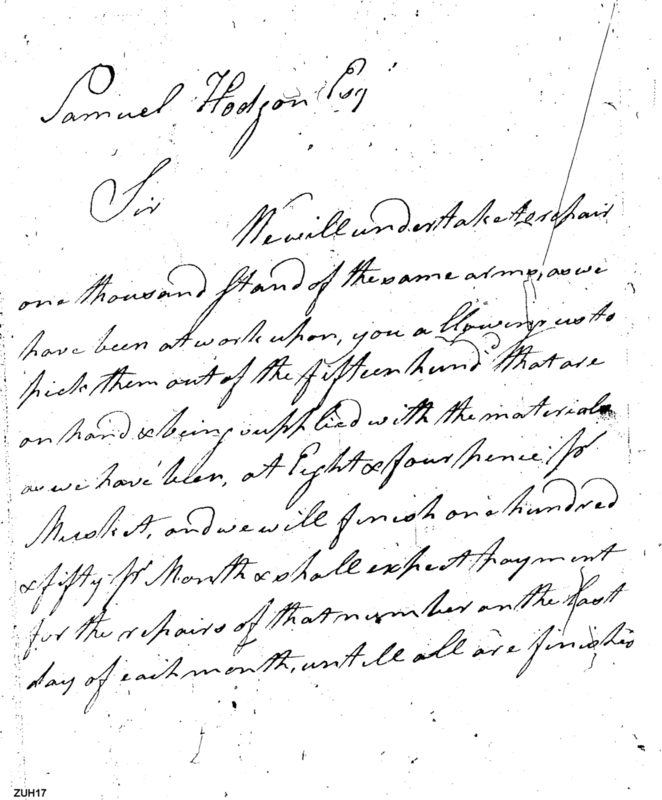 Samuel Hodgson Esqr
Sir
We will undertake to repair
one thousand Stand of the same arms, as we
have been at work upon, you allowing us to
pick them out of the fifteen hund.d that are
on hand & being supplied with the materials
as we have been, at Eight & four pence pr
Musket, and we will finish one hundred
& fifty pr Month & shall expect payment
for the repairs of that number on the last
day of each month, untill all are finished
ZUH17